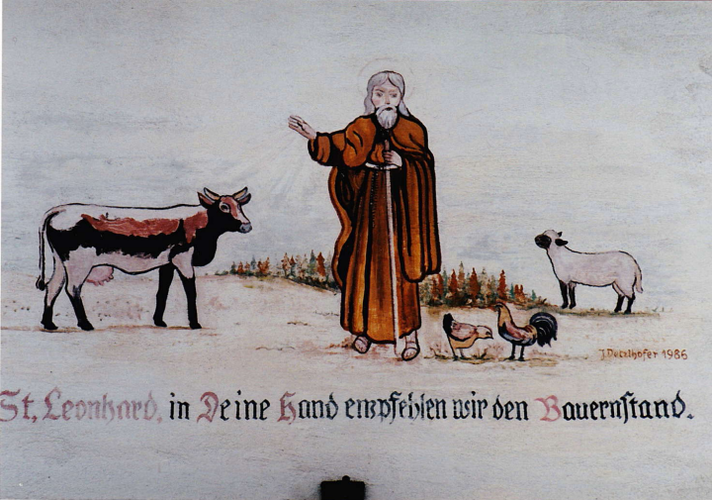 J Detzlhofer 1986
St. Leonhard, in Deine Hand empfehlen wir den Bauernstand.